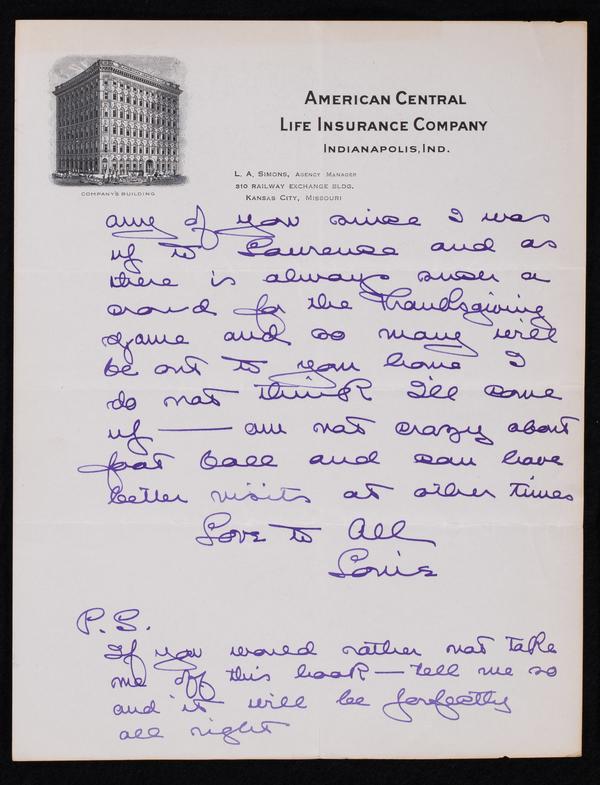 AMERICAN CENTRAL
LIFE INSURANCE COMPANY
INDIANAPOLIS, IND.
L. A. SIMONS, AGENCY MANAGER
310 RAILWAY EXCHANGE BLDG.
KANSAS CITY, MISSOURI
COMPANY'S BUILDING
any of you since I was
up to Lawrence and as
there is always such a
crowd for the Thanksgiving
game and so many will
be out to your home I
do not think I'll come
up — am not crazy about
foot ball and can have
better visits at other times
Love to All
Louie
P.S.
If you would rather not take
me off this hook — tell me so
and it will be perfectly
all right